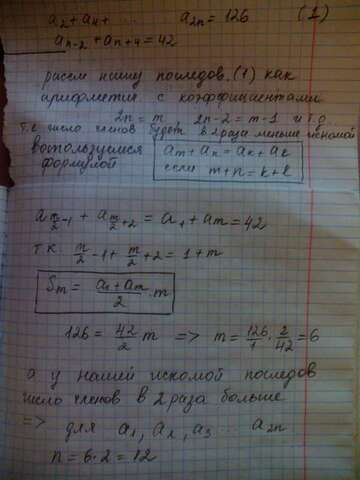 a₂ + a₄ + ... a₂ₙ = 126 (1)
aₙ₋₂ + aₙ₊₄ = 42
рассм нашу последов. (1) как
арифметич с коэффициентами
2n = m 2n-2 = m-1 и т.о.
т.е число членов будет в 2 раза меньше искомой
воспользуемся
формулой
aₘ + aₙ = aₖ + aₑ
если m+n = k+ℓ
a_{m/2 -1} + a_{m/2 +2} = a₁ + aₘ = 42
т.к. m/2 -1 + m/2 +2 = 1+m
Sₘ = (a₁ + aₘ)/2 · m
126 = 42/2 m => m = 126/1 · 2/42 = 6
а у нашей искомой последов
число членов в 2 раза больше
=> для a₁, a₂, a₃ ... a₂ₙ
n = 6·2 = 12